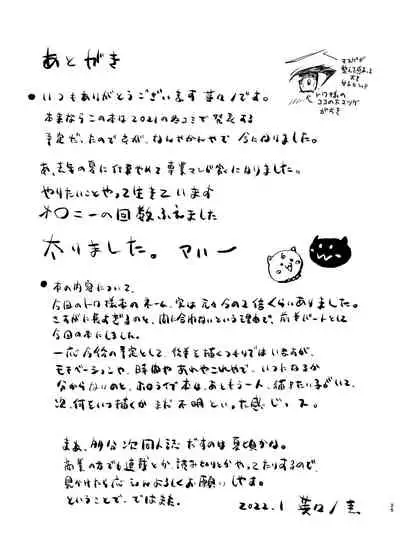 あとがき
● いつもありがとうございます 葵ノです。
本来ならこの本は2021の冬コミで発表する
予定だったのですが、なんやかんやで 今になりました。
あ、去年の夏に仕事やめて専業マンガ家になりました。
やりたいことやって生きています
オ〇ニーの回数ふえました
太りました。 アハー
● 本の内容について、
今回のトワ様本のネーム、実は元々今の2倍くらいありました。
さすがに長すぎるのと、間に合わないという理由で、前半パートとして
今回の本にしました。
一応今後の予定として、後半も描くつもりではいますが、
モチベーションや、時間や あれやこれやで、いつになるか
分からないのと、ホロライブ本は、あともう一人、描きたい子がいて、
次、何をいつ描くか まだ 不明といった感じっス。
まぁ、多分次同人誌 だすのは夏頃かな。
商業の方でも連載とか、読み切りとかやってたりするので、
見かけたら応えんよろしくお願いしやす。
ということで、では また。
2022.1